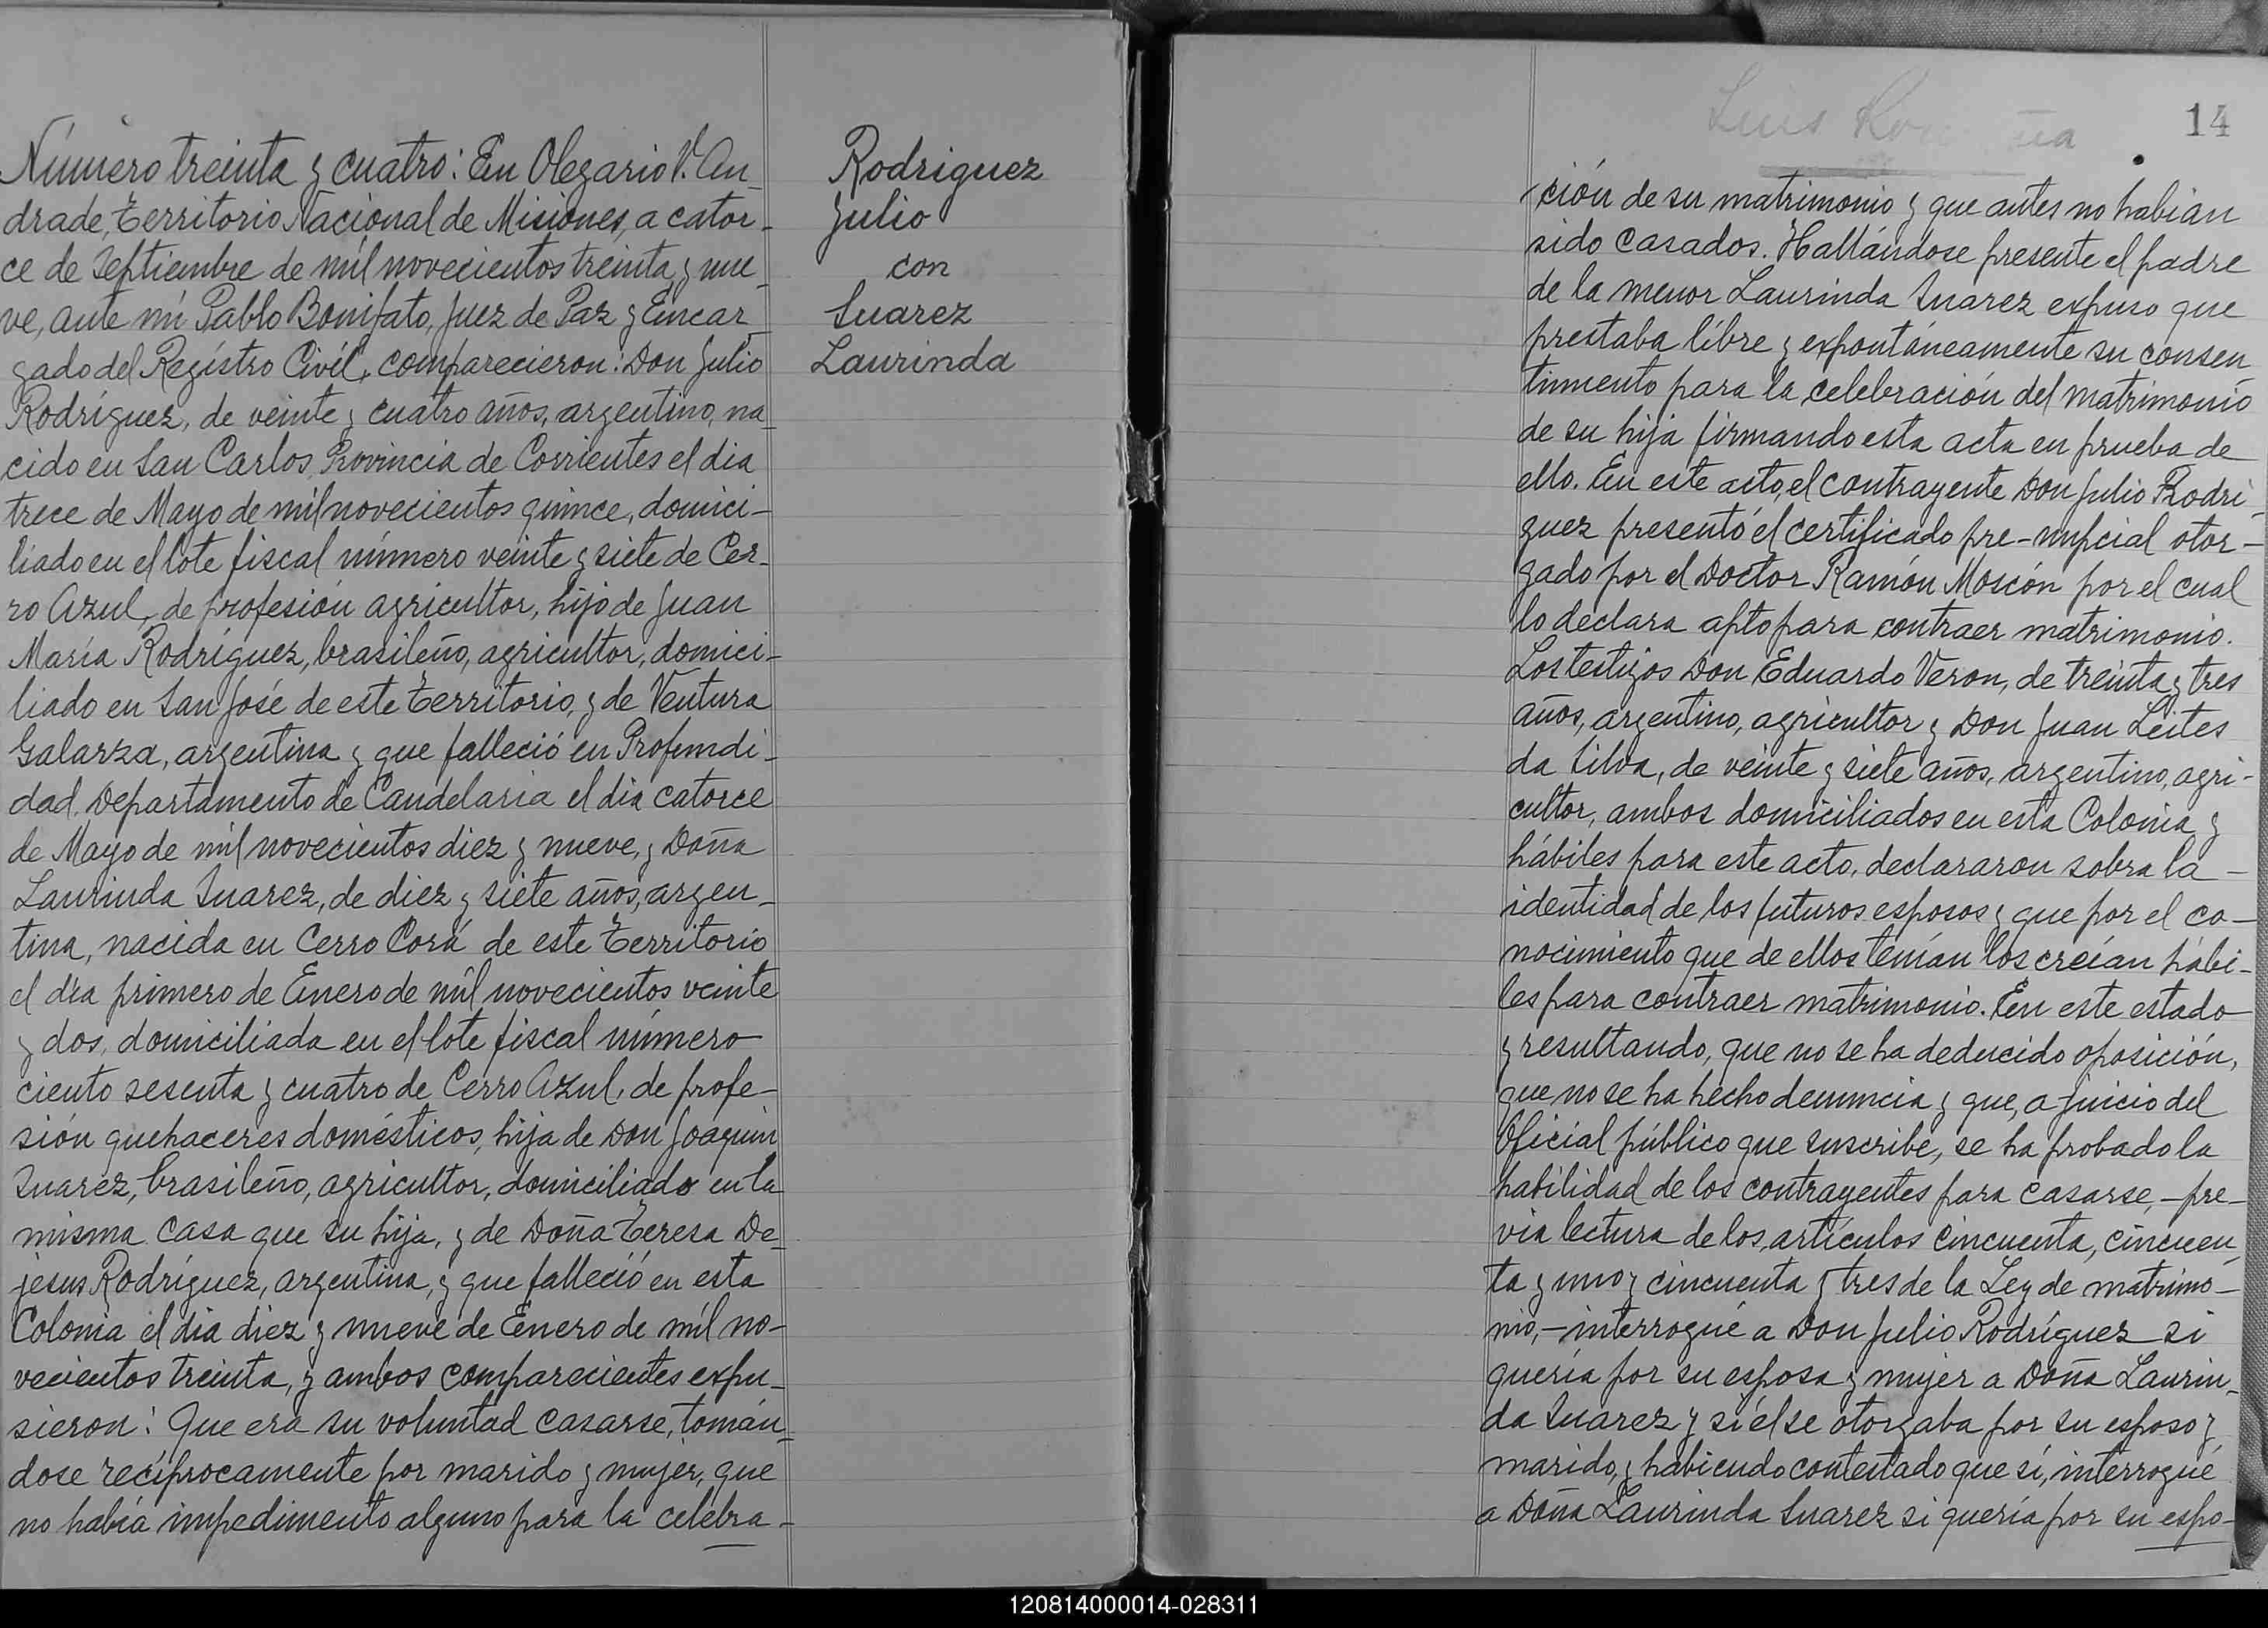 Número treinta y cuatro: En Olegario V. An-
drade, Territorio Nacional de Misiones, a cator-
ce de Septiembre de mil novecientos treinta y nue-
ve, ante mí Pablo Bonifato, Juez de Paz y Encar-
gado del Registro Civil, comparecieron: Don Julio
Rodríguez, de veinte y cuatro años, argentino, na-
cido en San Carlos, Provincia de Corrientes el dia
trece de Mayo de mil novecientos quince, domici-
liado en el lote fiscal número veinte y siete de Cer-
ro Azul, de profesión agricultor, hijo de Juan
María Rodríguez, brasileño, agricultor, domici-
liado en San José de este Territorio, y de Ventura
Galarza, argentina y que falleció en Profundi-
dad, Departamento de Candelaria el dia catorce
de Mayo de mil novecientos diez y nueve, y Doña
Laurinda Suarez, de diez y siete años, argen-
tina, nacida en Cerro Corá de este Territorio
el dia primero de Enero de mil novecientos veinte
y dos, domiciliada en el lote fiscal número
ciento sesenta y cuatro de Cerro Azul, de profe-
sión quehaceres domésticos, hija de Don Joaquin
Suarez, brasileño, agricultor, domiciliado en la
misma casa que su hija, y de Doña Teresa De-
jesus Rodríguez, argentina, y que falleció en esta
Colonia el dia diez y nueve de Enero de mil no-
vecientos treinta, y ambos comparecientes expu-
sieron: Que era su voluntad casarse, tomán-
dose recíprocamente por marido y mujer, que
no había impedimento alguno para la celebra-
Rodriguez
Julio
con
Suarez
Laurinda
Luis
14
ción de su matrimonio y que antes no habían
sido casados. Hallándose presente el padre
de la menor Laurinda Suarez expuso que
prestaba libre y expontáneamente su consen
timiento para la celebración del matrimonio
de su hija firmando esta acta en prueba de
ello. En este acto, el contrayente Don Julio Rodrí-
guez presentó el certificado pre-nupcial otor-
gado por el Doctor Ramón Moscón por el cual
lo declara apto para contraer matrimonio.
Los testigos Don Eduardo Veron, de treinta y tres
años, argentino, agricultor y Don Juan Leites
da Silva, de veinte y siete años, argentino, agri-
cultor, ambos domiciliados en esta Colonia y
hábiles para este acto, declararon sobra la -
identidad de los futuros esposos y que por el co-
nocimiento que de ellos tenían los creían hábi-
les para contraer matrimonio. En este estado
y resultando, que no se ha deducido oposición,
que no se ha hecho denuncia y que, a juicio del
Oficial público que suscribe, se ha probado la
habilidad de los contrayentes para casarse, - pre-
via lectura de los artículos cincuenta, cincuen-
ta y uno y cincuenta y tres de la Ley de matrimo-
nio, - interrogué a Don Julio Rodríguez si
quería por su esposa y mujer a Doña Laurin-
da Suarez y si él se otorgaba por su esposo y
marido, y habiendo contestado que sí, interrogué
a Doña Laurinda Suarez si quería por su espo-
120814000014-028311